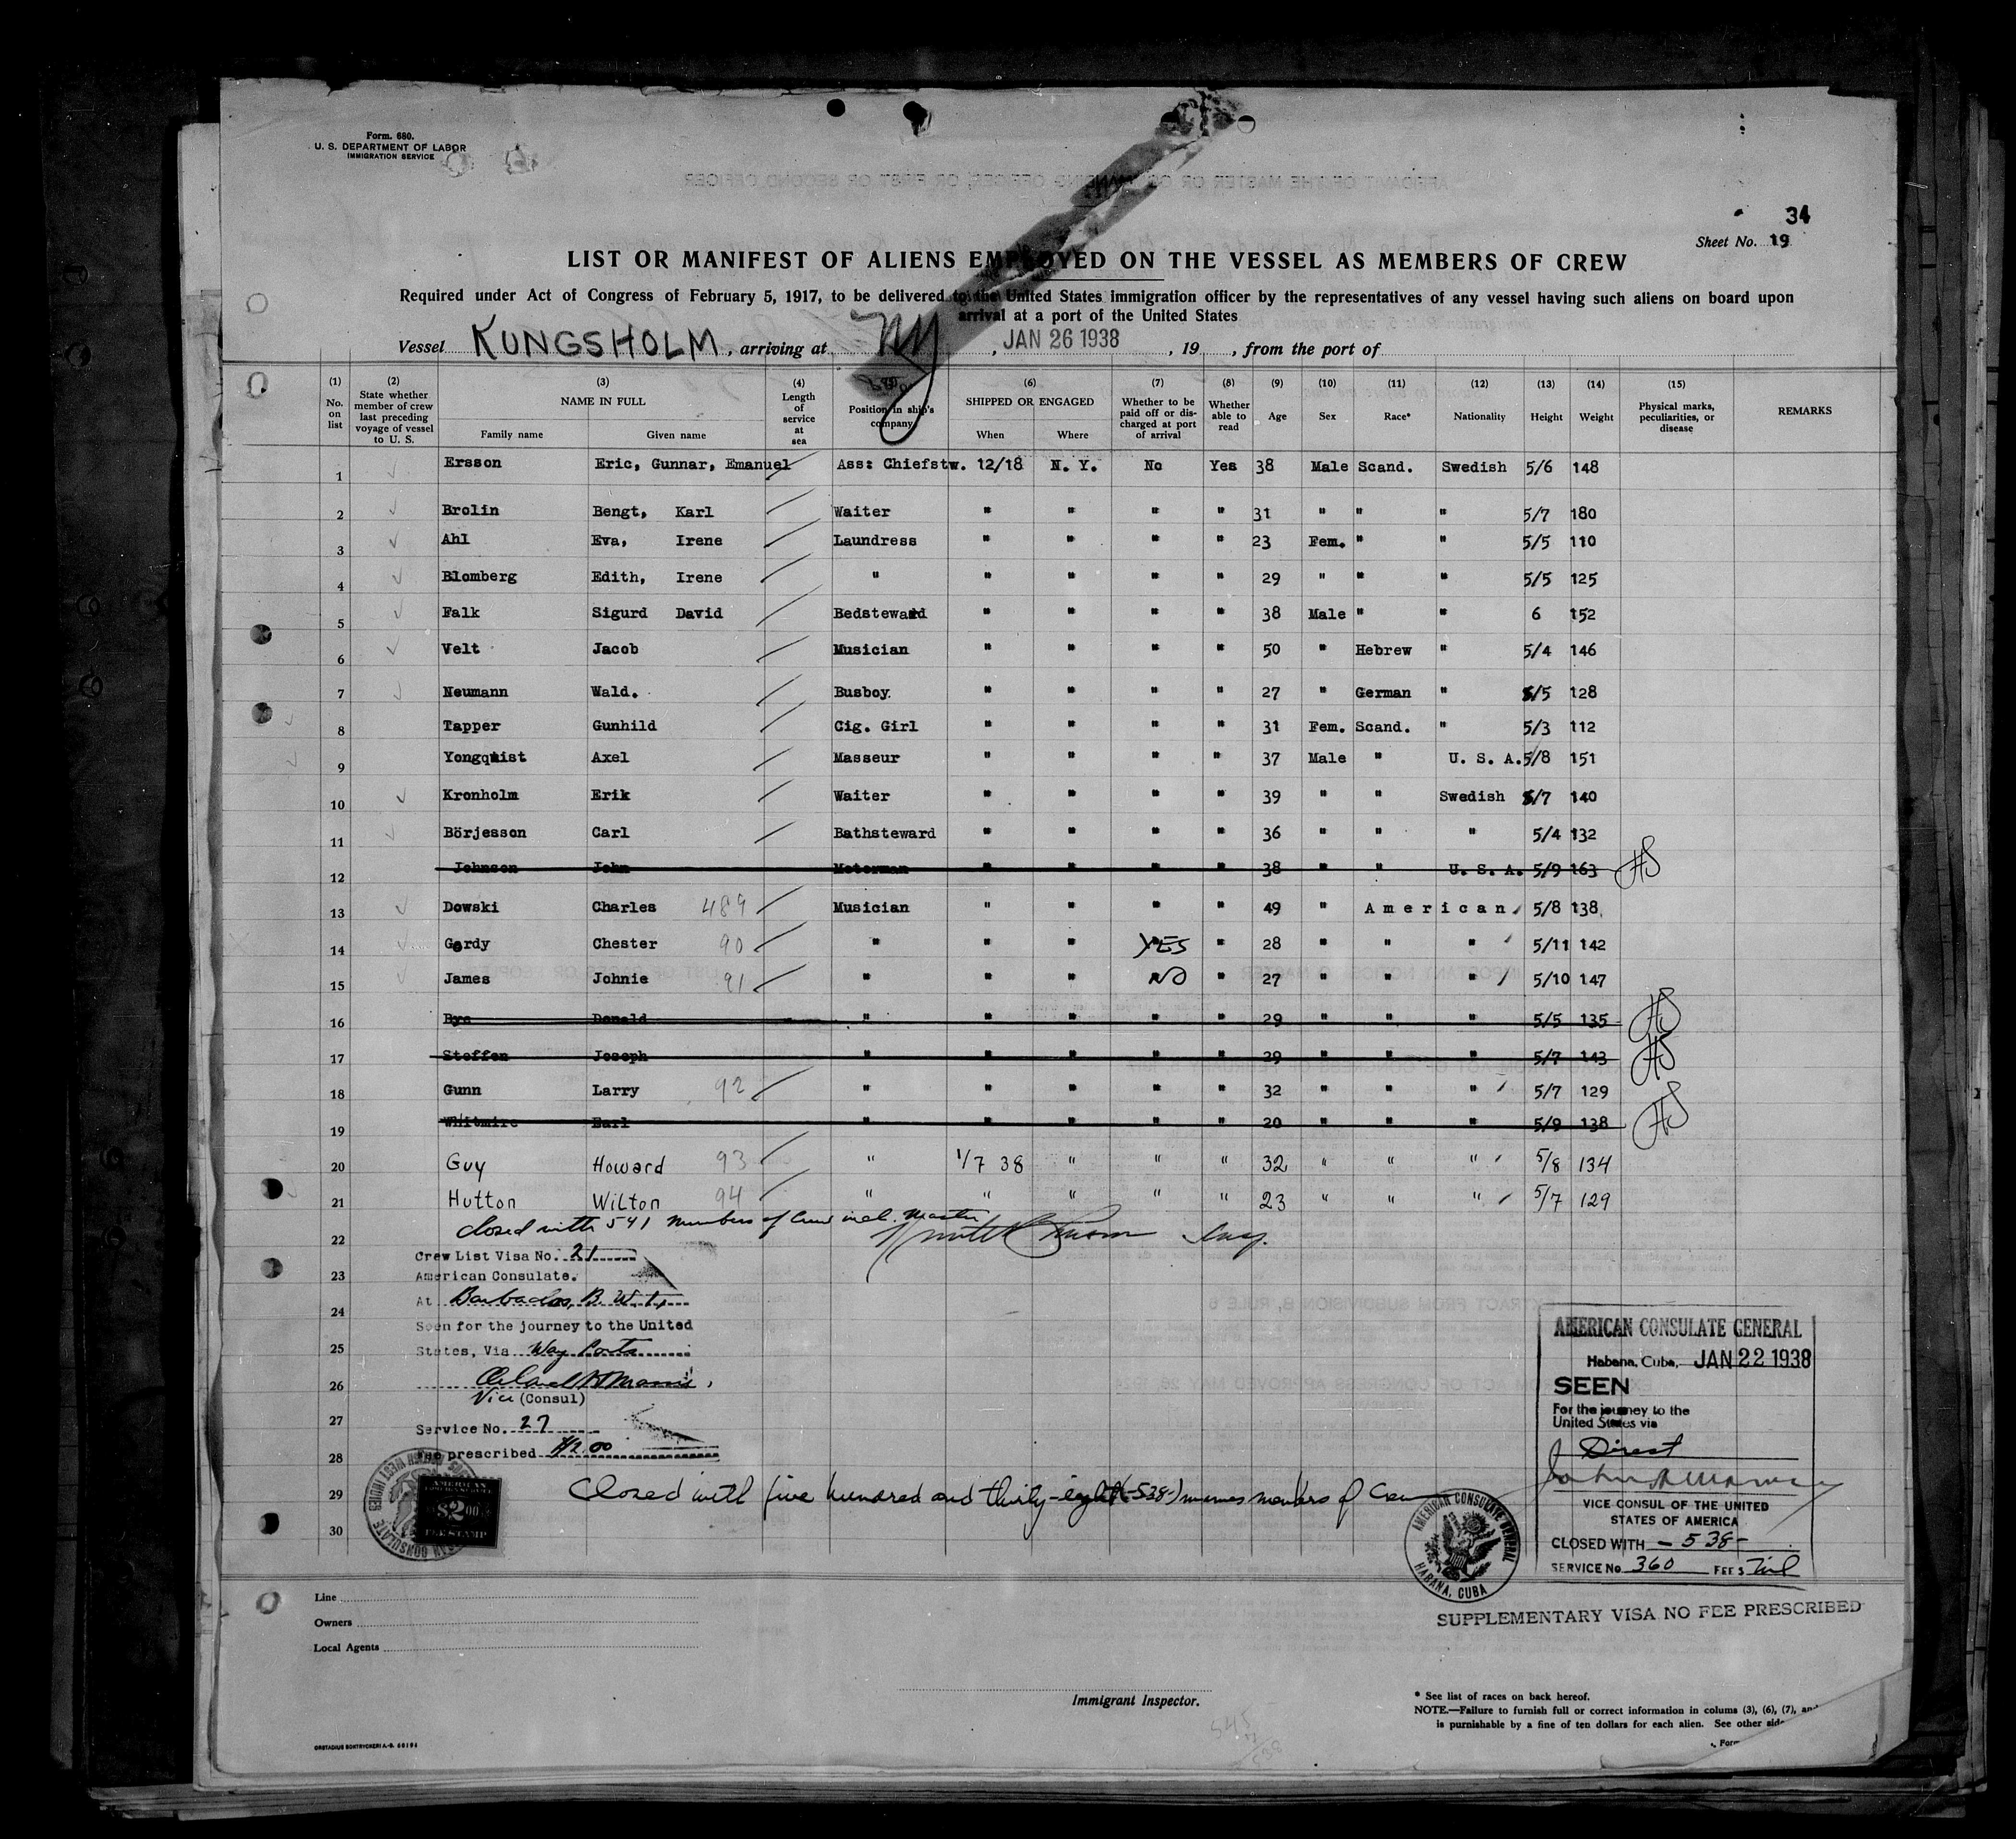 Form. 680.
U. S. DEPARTMENT OF LABOR
IMMIGRATION SERVICE
34
Sheet No. 19
LIST OR MANIFEST OF ALIENS EMPLOYED ON THE VESSEL AS MEMBERS OF CREW
Required under Act of Congress of February 5, 1917, to be delivered to the United States immigration officer by the representatives of any vessel having such aliens on board upon
arrival at a port of the United States
Vessel KUNGSHOLM, arriving at NY, JAN 26 1938, 19 , from the port of
(1) No. on list (2) State whether member of crew last preceding voyage of vessel to U. S. (3) NAME IN FULL Family name Given name (4) Length of service at sea Position in ship's company (6) SHIPPED OR ENGAGED When Where (7) Whether to be paid off or discharged at port of arrival (8) Whether able to read (9) Age (10) Sex (11) Race* (12) Nationality (13) Height (14) Weight (15) Physical marks, peculiarities, or disease REMARKS
1 Ersson Eric, Gunnar, Emanuel Ass: Chiefstw. 12/18 N. Y. No Yes 38 Male Scand. Swedish 5/6 148
2 Brolin Bengt, Karl Waiter " " " " 31 " " " 5/7 180
3 Ahl Eva, Irene Laundress " " " " 23 Fem. " " 5/5 110
4 Blomberg Edith, Irene " " " " " 29 " " " 5/5 125
5 Falk Sigurd David Bedsteward " " " " 38 Male " " 6 152
6 Velt Jacob Musician " " " " 50 " Hebrew " 5/4 146
7 Neumann Wald. Busboy. " " " " 27 " German " 5/5 128
8 Tapper Gunhild Cig. Girl " " " " 31 Fem. Scand. " 5/3 112
9 Yongquist Axel Masseur " " " " 37 Male " U. S. A. 5/8 151
10 Kronholm Erik Waiter " " " " 39 " " Swedish 5/7 140
11 Börjesson Carl Bathsteward " " " " 36 " " " 5/4 132
12 Johnson John Motorman " " " " 38 " " U. S. A. 5/9 163 HS
13 Dowski Charles 489 Musician " " " " 49 " American 5/8 138
14 Gordy Chester 90 " " " YES " 28 " " " 5/11 142
15 James Johnie 91 " " " NO " 27 " " " 5/10 147
16 Bye Donald " " " " " 29 " " " 5/5 135 HS
17 Steffen Joseph " " " " " 29 " " " 5/7 143 HS
18 Gunn Larry 92 " " " " " 32 " " " 5/7 129
19 Whitmire Earl " " " " " 20 " " " 5/9 138 HS
20 Guy Howard 93 " 1/7 38 " " " 32 " " " 5/8 134
21 Hutton Wilton 94 " " " " " 23 " " " 5/7 129
Closed with 541 members of Crew incl. Master
22
Crew List Visa No. 21
23 American Consulate.
24 At Barbados, B. W. I.
Seen for the journey to the United
25 States, Via Way Ports
26
Vice (Consul)
27 Service No. 27
28 Fee prescribed $2.00
29 Closed with five hundred and thirty-eight (-538-) members of Crew
30
AMERICAN
$2.00
FEE STAMP
AMERICAN CONSULATE GENERAL
Habana, Cuba, JAN 22 1938
SEEN
For the journey to the
United States via
Direct
VICE CONSUL OF THE UNITED
STATES OF AMERICA
CLOSED WITH -538-
SERVICE No 360 FEE $ Nil
AMERICAN CONSULATE GENERAL
HABANA, CUBA
SUPPLEMENTARY VISA NO FEE PRESCRIBED
Line
Owners
Local Agents
Immigrant Inspector.
* See list of races on back hereof.
NOTE.—Failure to furnish full or correct information in colums (3), (6), (7),
is punishable by a fine of ten dollars for each alien. See other
545